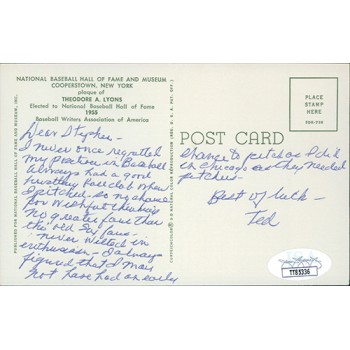 NATIONAL BASEBALL HALL OF FAME AND MUSEUM
COOPERSTOWN, NEW YORK
plaque of
THEODORE A. LYONS
Elected to National Baseball Hall of Fame
1955
Baseball Writers Association of America
Dear Stephen -
I never once regretted
my position in Baseball
Always had a good
hustling base club when
I pitched - so no chance
for wishful thinking
No greater fans than
the old Sox fans -
never wilted in
enthusiasm - I always
figured that I may
not have had an early
POST CARD
PLACE
STAMP
HERE
chance to pitch as I did
in Chicago as they needed
pitchers -
Best of luck -
Ted
TT85336